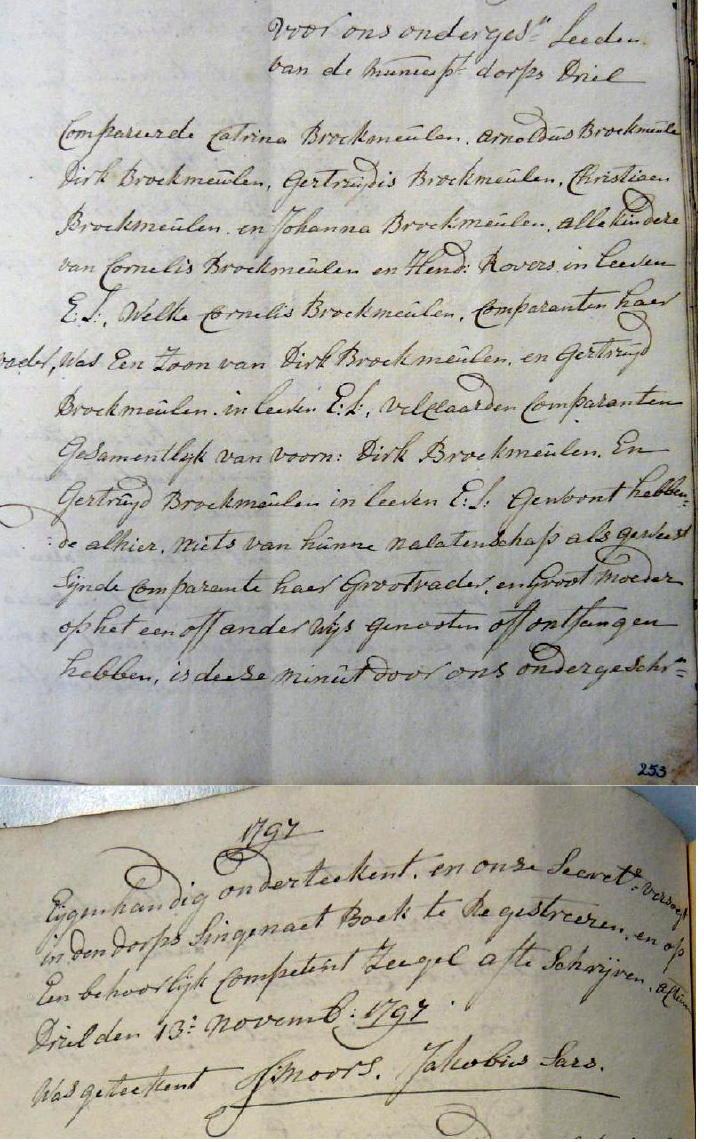 voor ons onderges:n Leeden
van de municip:t dorps Driel
Compareerde Catrina Brockmeülen, Arnoldüs Brockmeüle
Dirk Brockmeülen, Gertruÿdis Brockmeülen, Christiaen
Brockmeülen en Johanna Brockmeülen, alle kindere
van Cornelis Brockmeülen en Hend: Rovers in leeven
E:L:, Welke Cornelis Brockmeülen, Comparanten haer
vader, Was Een Zoon van Dirk Brockmeülen, en Gertruÿd
Brockmeülen in leeven E:L:, verclaarden Comparanten
Gesamentlijk van voorn: Dirk Brockmeülen, En
Gertruÿd Brockmeülen in leeven E:L: Gewoont hebben=
:de alhier, niets van hünne nalatenschap als geweest
Sijnde Comparante haer Grootvader, en Groot moeder
op het een off ander Wijs genooten off ontfangen
hebben, is deeze minüt door ons ondergeschr:n=
253
1797
Eijgenhandig onderteekent, en onze Secret:s versogt
in den dorps Singenaet Boek te Registreeren, en op
Een behoorlijk Competent Zeegel afte Schrijven, actum
Driel den 13:e novemb: 1797
Was geteekent J: Moors. Jakobus Sars.